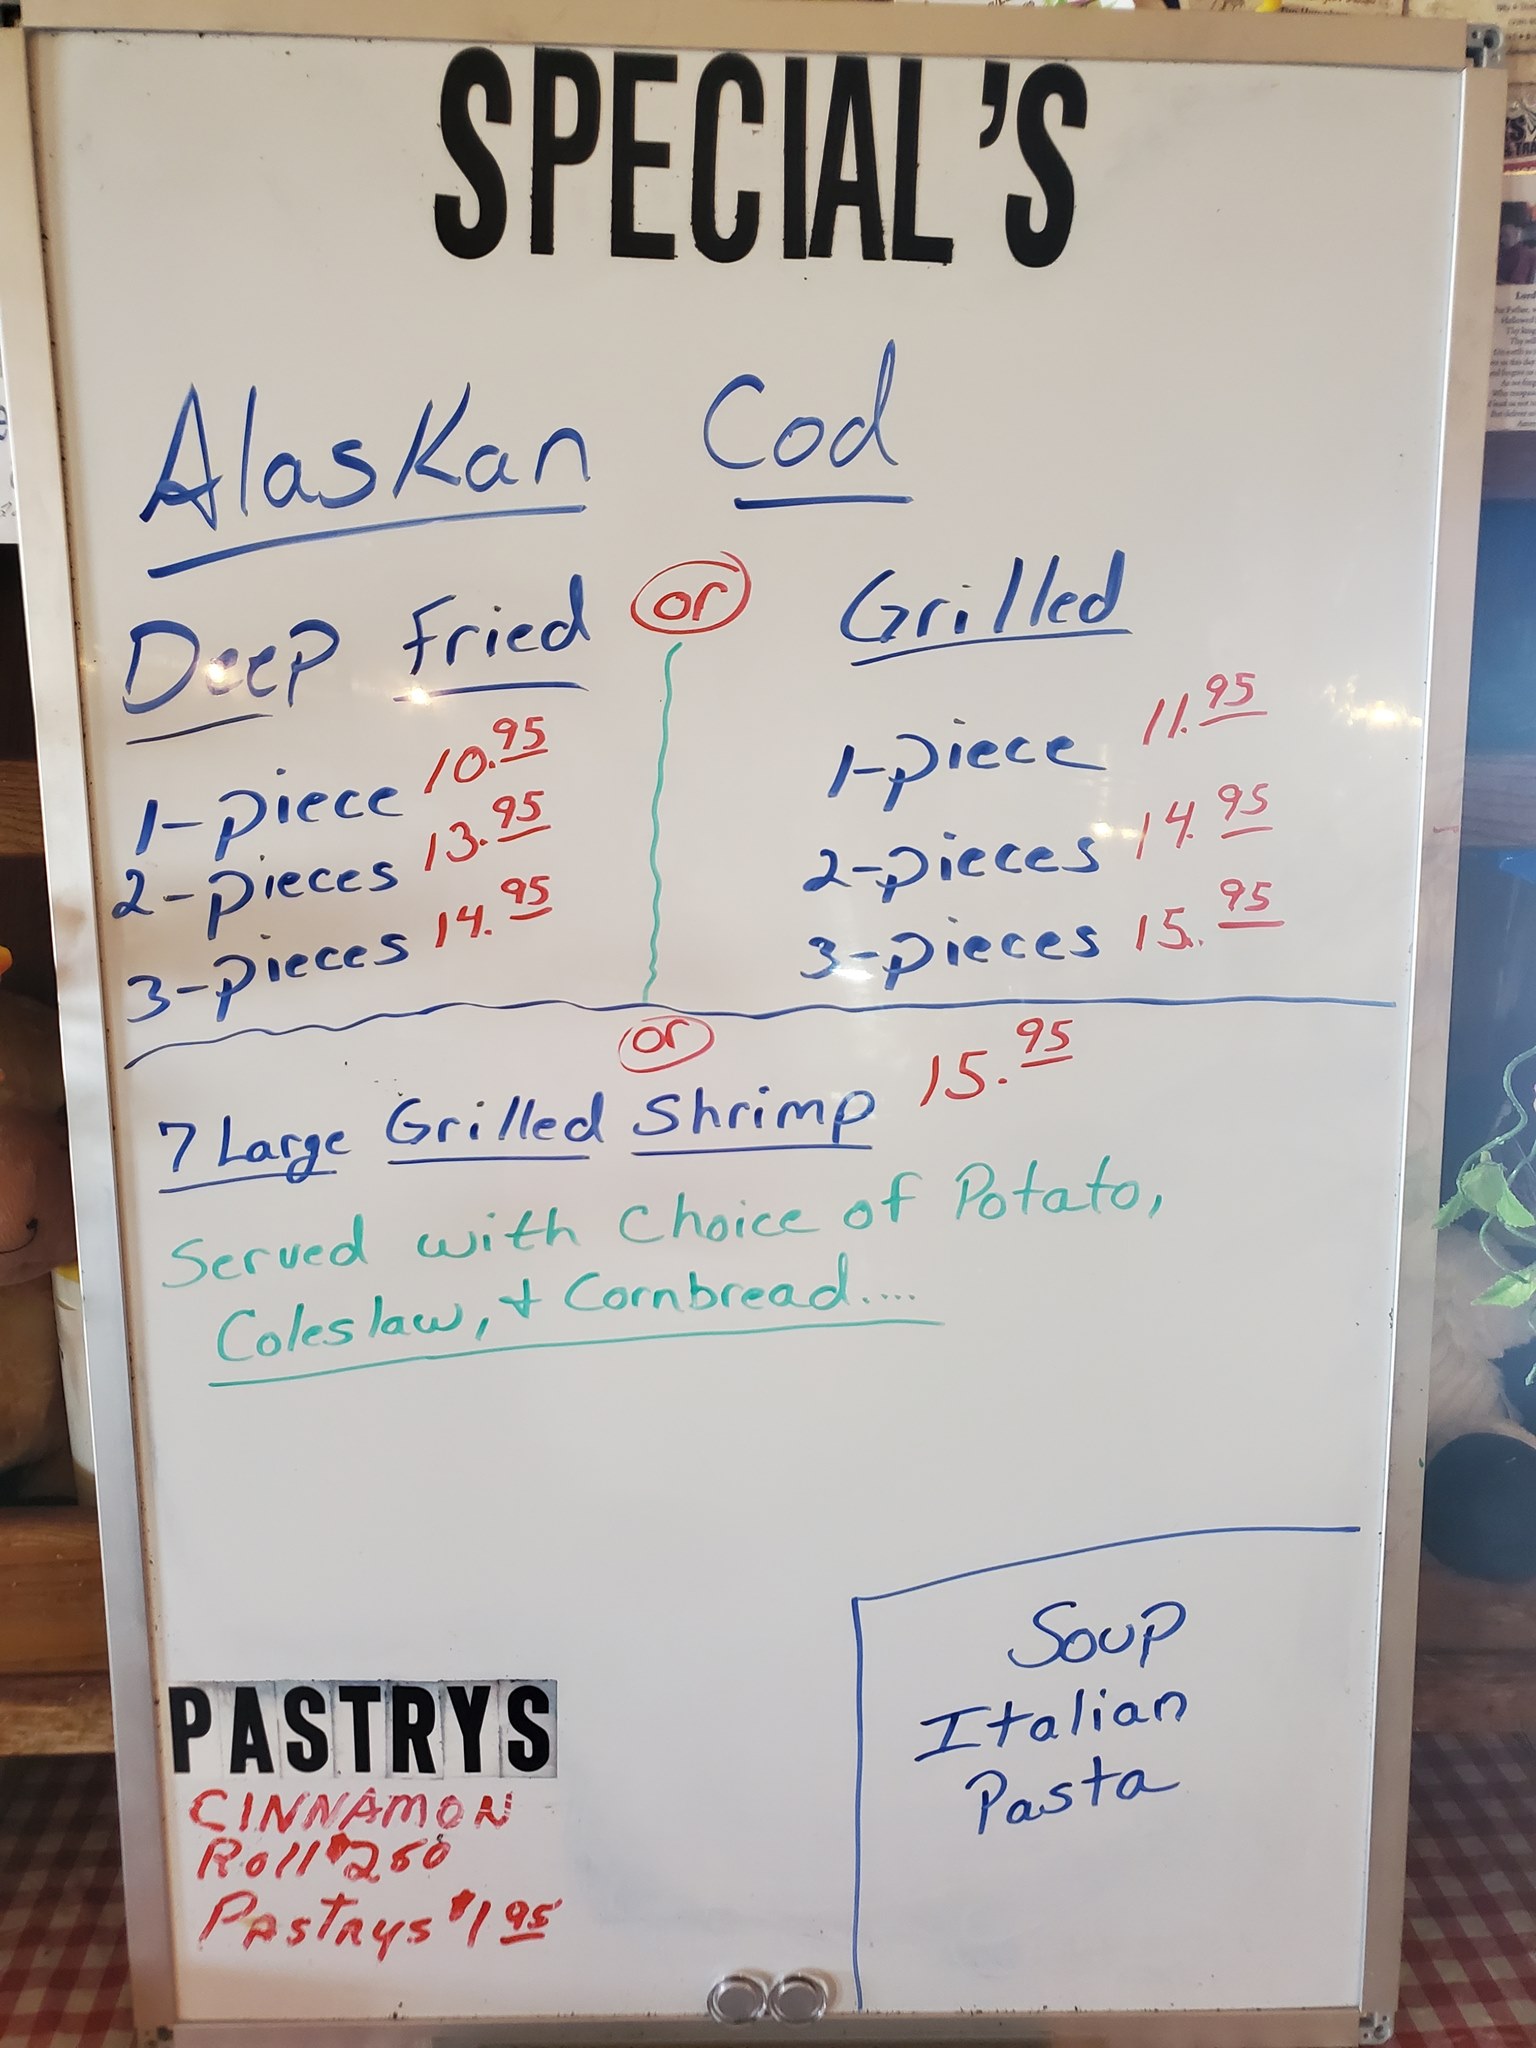 SPECIAL'S
Alaskan Cod
Deep Fried or Grilled
1-piece 10.95
2-pieces 13.95
3-pieces 14.95
1-piece 11.95
2-pieces 14.95
3-pieces 15.95
or
7 Large Grilled Shrimp 15.95
Served with Choice of Potato,
Coleslaw, + Cornbread....
PASTRYS
CINNAMON
Roll $260
PAstrys $1 95
Soup
Italian
Pasta